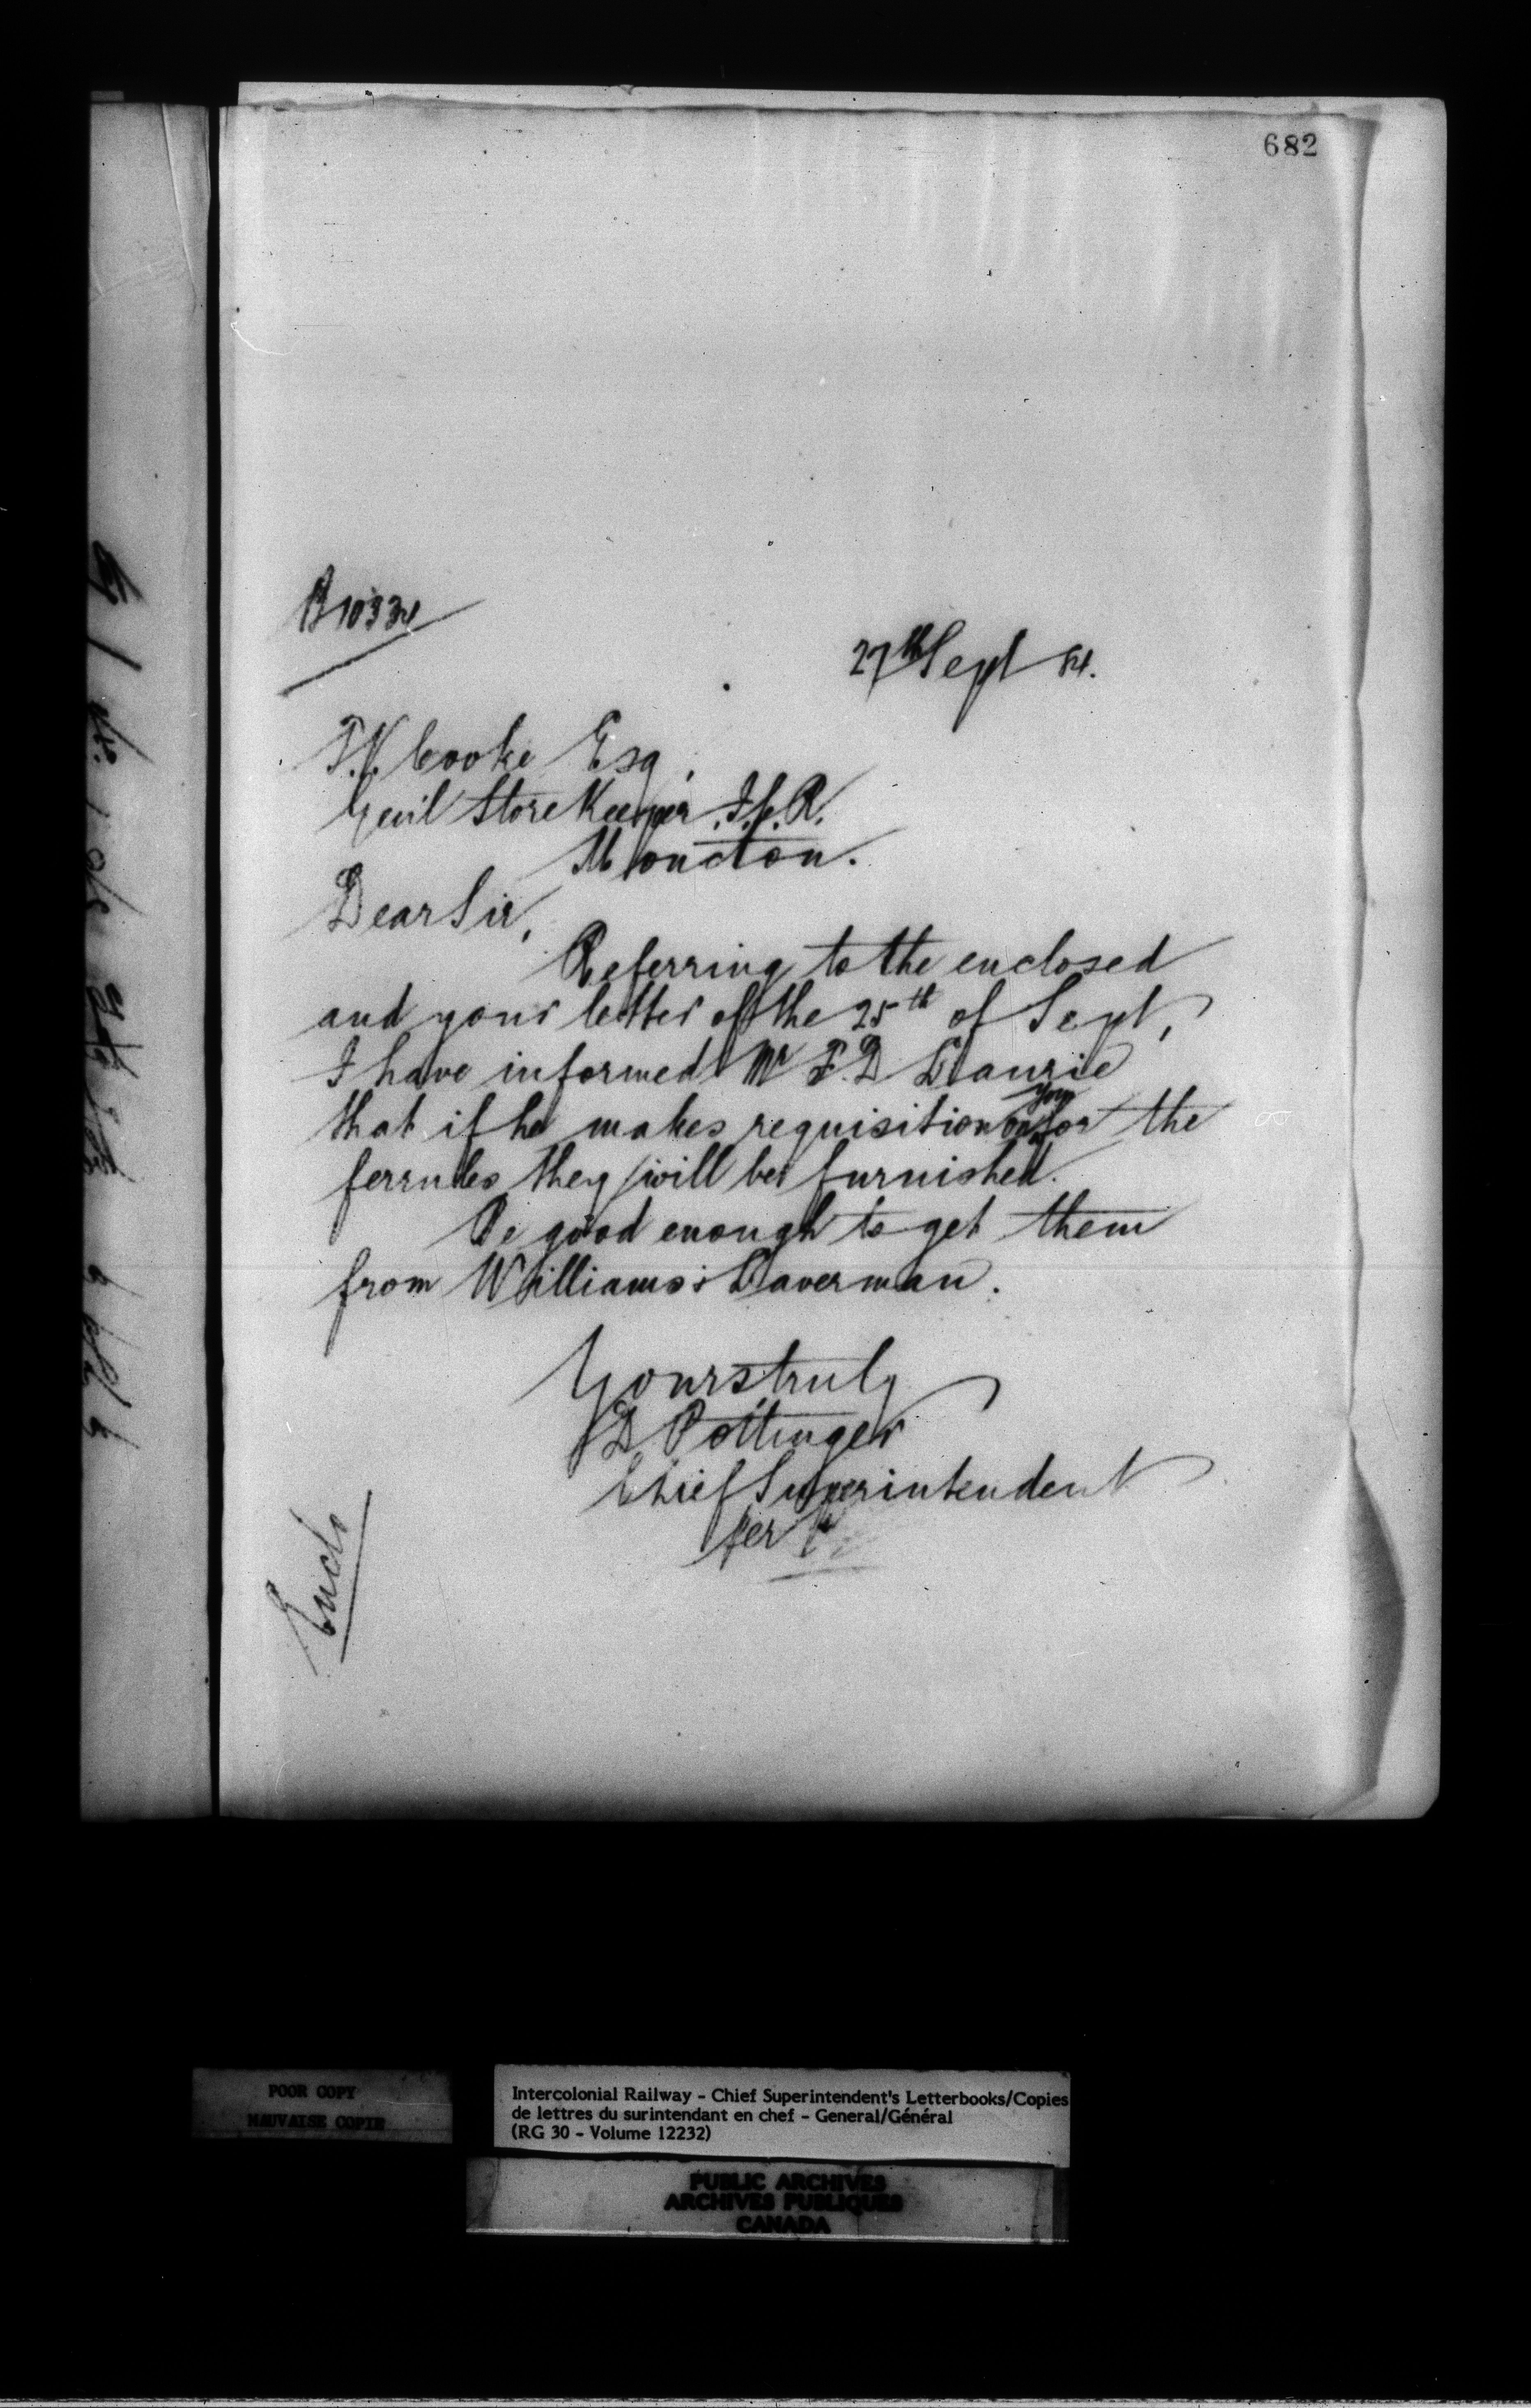 682
27th Sept 84.
T.V. Cooke Esq.
Genl Store Keeper I.C.R.
Moncton.
Dear Sir,
Referring to the enclosed
and your letter of the 25th of Sept,
I have informed Mr F.D. Laurie
that if he makes requisition on you for the
ferrules they will be furnished.
Be good enough to get them
from Williams & Laverman.
Yours truly
D Pottinger
Chief Superintendent
per
Enclo
POOR COPY
MAUVAISE COPIE
Intercolonial Railway - Chief Superintendent's Letterbooks/Copies
de lettres du surintendant en chef - General/Général
(RG 30 - Volume 12232)
PUBLIC ARCHIVES
ARCHIVES PUBLIQUES
CANADA